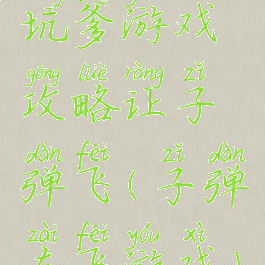 坑爹游戏
gōng lüè ràng zǐ
攻略让子
dàn fēi zǐ dàn
弹飞(子弹
zài fēi yóu xì
在飞游戏)